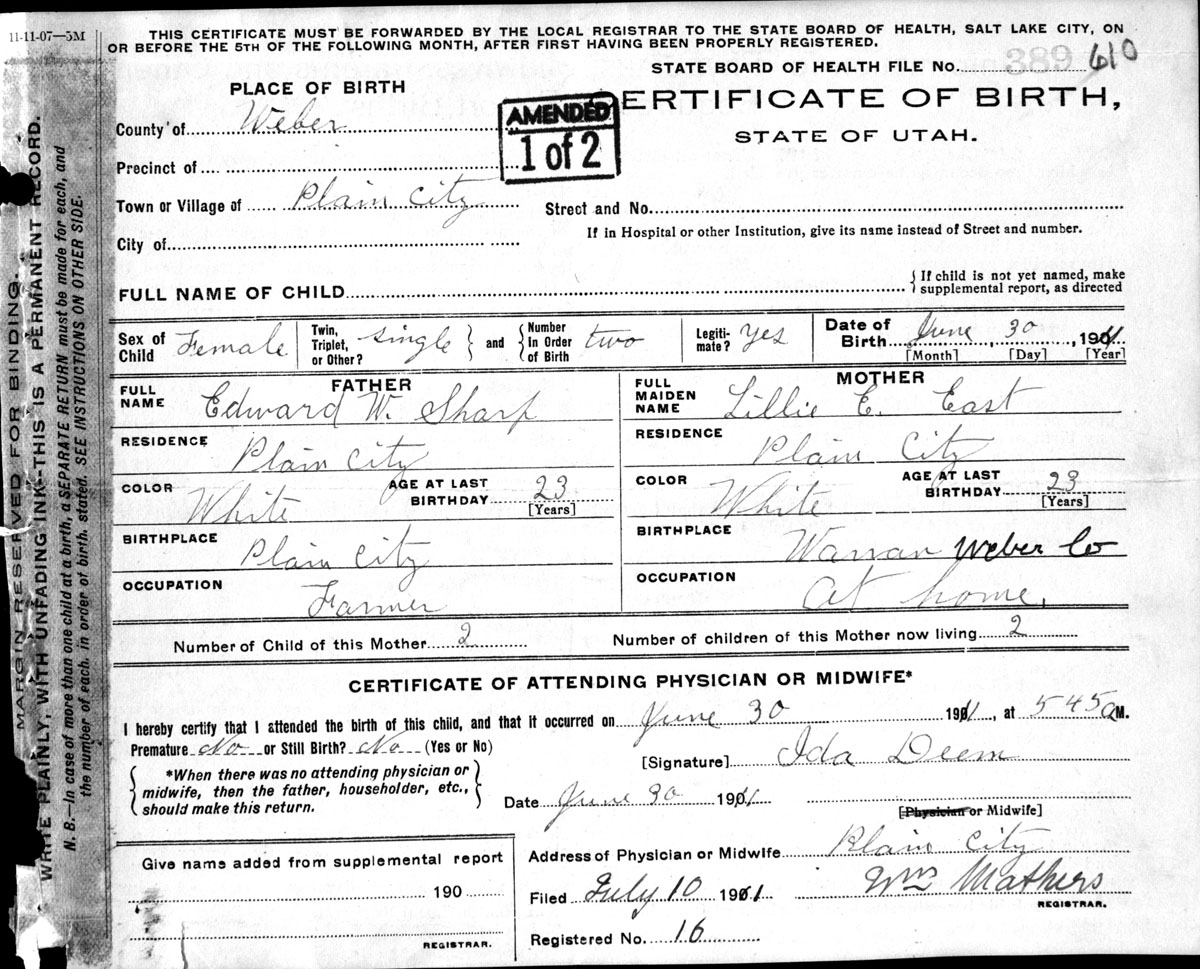 11-11-07—5M
THIS CERTIFICATE MUST BE FORWARDED BY THE LOCAL REGISTRAR TO THE STATE BOARD OF HEALTH, SALT LAKE CITY, ON
OR BEFORE THE 5TH OF THE FOLLOWING MONTH, AFTER FIRST HAVING BEEN PROPERLY REGISTERED.
STATE BOARD OF HEALTH FILE No. 389 610
PLACE OF BIRTH
AMENDED
1 of 2
CERTIFICATE OF BIRTH,
STATE OF UTAH.
County of Weber
Precinct of
Town or Village of Plain City
Street and No.
City of
If in Hospital or other Institution, give its name instead of Street and number.
FULL NAME OF CHILD
{If child is not yet named, make
supplemental report, as directed
Sex of Child Female
Twin, Triplet, or Other? single } and { Number In Order of Birth two
Legitimate? yes
Date of Birth June 30, 1911
[Month] [Day] [Year]
FATHER
FULL NAME Edward W. Sharp
RESIDENCE Plain City
COLOR White AGE AT LAST BIRTHDAY 23 [Years]
BIRTHPLACE Plain City
OCCUPATION Farmer
MOTHER
FULL MAIDEN NAME Lillie E. East
RESIDENCE Plain City
COLOR White AGE AT LAST BIRTHDAY 23 [Years]
BIRTHPLACE Warran Weber Co
OCCUPATION At home.
Number of Child of this Mother 2
Number of children of this Mother now living 2
CERTIFICATE OF ATTENDING PHYSICIAN OR MIDWIFE*
I hereby certify that I attended the birth of this child, and that it occurred on June 30 1911, at 5 45 a M.
Premature No or Still Birth? No (Yes or No)
{ *When there was no attending physician or
midwife, then the father, householder, etc.,
should make this return. }
[Signature] Ida Deem
Date June 30 1911
[Physician or Midwife]
Address of Physician or Midwife Plain City
Filed July 10 1911 Wm Mathers
REGISTRAR.
Registered No. 16
Give name added from supplemental report
190
REGISTRAR.
MARGIN RESERVED FOR BINDING.
WRITE PLAINLY, WITH UNFADING INK—THIS IS A PERMANENT RECORD.
N. B.—In case of more than one child at a birth, a SEPARATE RETURN must be made for each, and
the number of each, in order of birth, stated. SEE INSTRUCTIONS ON OTHER SIDE.